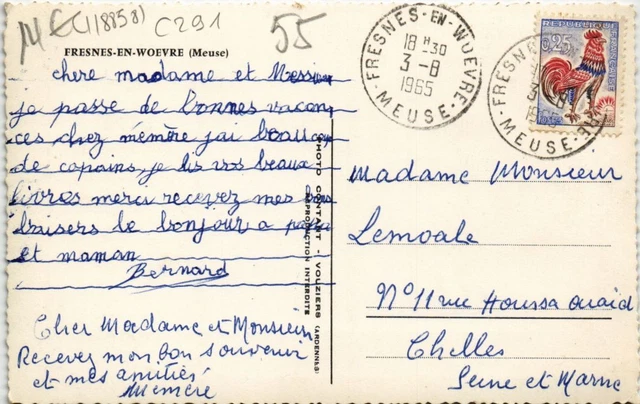 MEC(18858) C291 55
FRESNES-EN-WOEVRE (Meuse)
chere madame et Messieu
je passe de bonnes vacan
ces chez mémère j'ai beauc
de copains, je lis vos beaux
livres merci recevez mes
baisers le bonjour a papa
et maman
Bernard
Cher Madame et Monsieur
Recevez mon bon souvenir
et mes amitiés
Mémère
PHOTO CONTANT - VOUZIERS (ARDENNES)
REPRODUCTION INTERDITE
FRESNES-EN-WOEVRE
18 H30
3-8
1965
MEUSE
REPUBLIQUE FRANCAISE
0,25
FRESNES
MEUSE
Madame Monsieur
Lemoale
N° 11 rue Houssa
Chelles
Seine et Marne